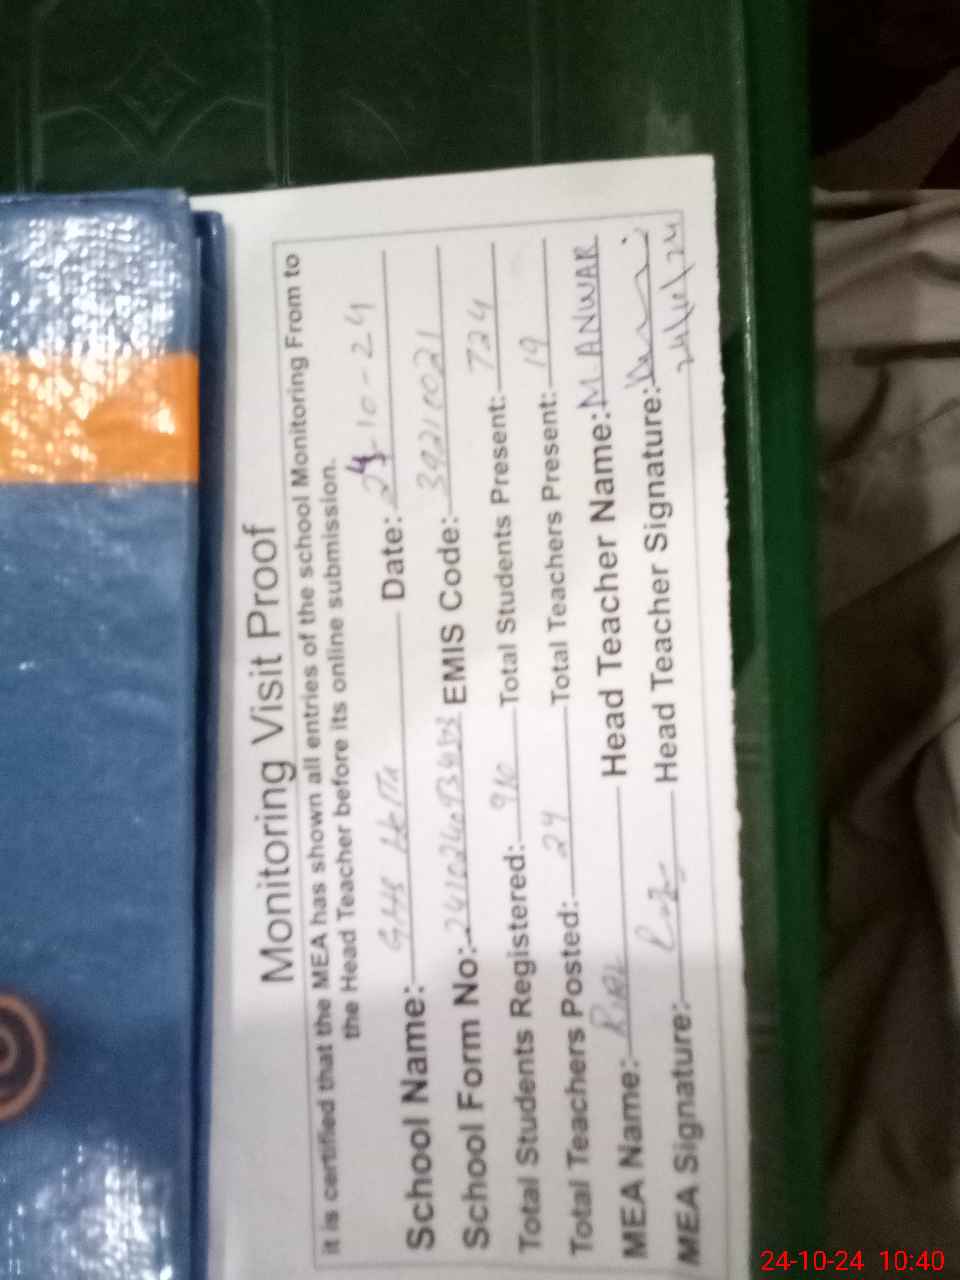 Monitoring Visit Proof
it is certified that the MEA has shown all entries of the school Monitoring From to
the Head Teacher before its online submission.
School Name: GHS Date: 24-10-24
School Form No: EMIS Code: 39210021
Total Students Registered: 910 Total Students Present: 724
Total Teachers Posted: 24 Total Teachers Present: 19
MEA Name: Head Teacher Name: M. ANWAR
MEA Signature: Head Teacher Signature:
24/10/24
24-10-24 10:40